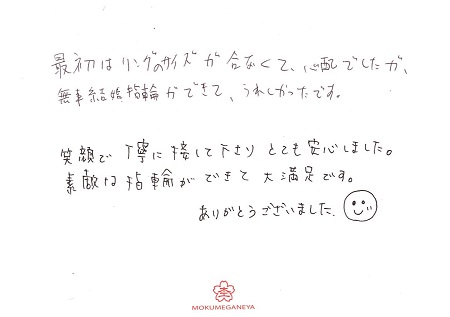 最初はリングのサイズが合なくて、心配でしたが、
無事結婚指輪ができて、うれしかったです。
笑顔で丁寧に接して下さり とても安心しました。
素敵な指輪ができて大満足です。
ありがとうございました。
MOKUMEGANEYA